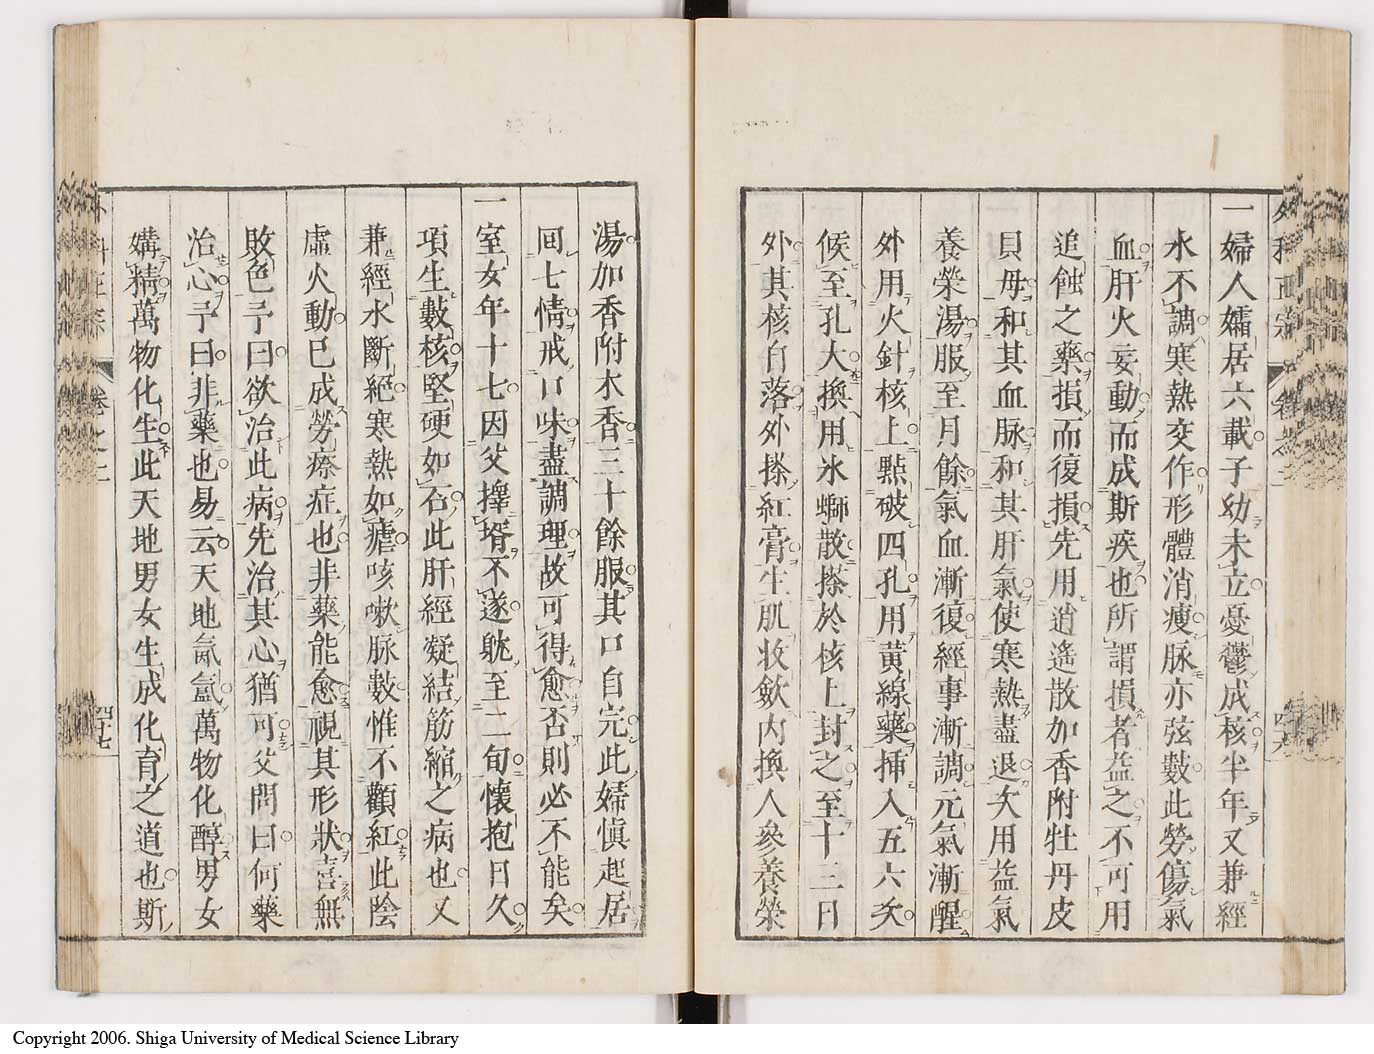 一婦人孀居六載子幼未立憂鬱成核半年又兼經
水不調寒熱交作形體消瘦脉亦弦數此勞傷氣
血肝火妄動而成斯疾也所謂損者益之不可用
追蝕之藥損而復損先用逍遙散加香附牡丹皮
貝母和其血脉和其肝氣使寒熱盡退次用益氣
養榮湯服至月餘氣血漸復經事漸調元氣漸醒
外用火針核上點破四孔用黃線藥揷入五六次
候至孔大換用冰螄散搽於核上封之至十三日
外其核自落外搽紅膏生肌收斂內換人參養榮
湯加香附木香三十餘服其口自完此婦愼起居
囘七情戒口味盡調理故可得愈否則必不能矣
一室女年十七因父擇壻不遂躭至二旬懷抱日久
項生數核堅硬如石此肝經凝結筋縮之病也又
兼經水斷絕寒熱如瘧咳嗽脉數惟不顴紅此陰
虛火動已成勞瘵症也非藥能愈視其形狀喜無
敗色予曰欲治此病先治其心猶可父問曰何藥
治心予曰非藥也易云天地氤氳萬物化醇男女
媾精萬物化生此天地男女生成化育之道也斯
四十七
Copyright 2006. Shiga University of Medical Science Library